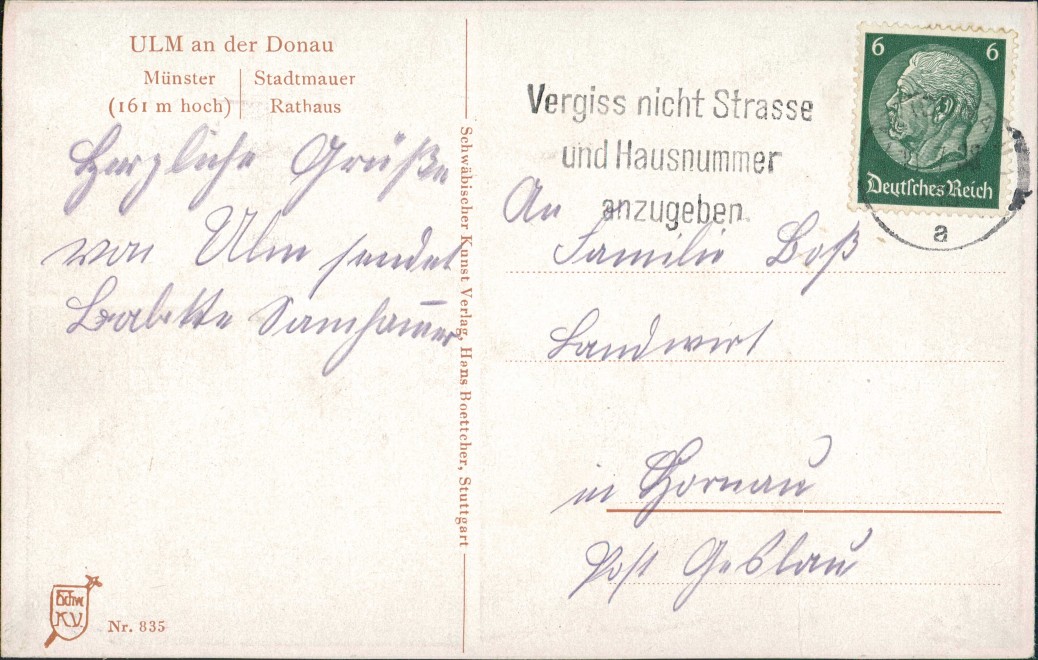 ULM an der Donau
Münster | Stadtmauer
(161 m hoch) | Rathaus
Herzliche Grüße
von Ulm sendet
Babette Samhamer
Schwäbischer Kunst Verlag, Hans Boettcher, Stuttgart
Schw.
K.V.
Nr. 835
Vergiss nicht Strasse
und Hausnummer
anzugeben
6 6
Deutsches Reich
a
An
Familie Boß
Landwirt
in Hornau
Post Geslau